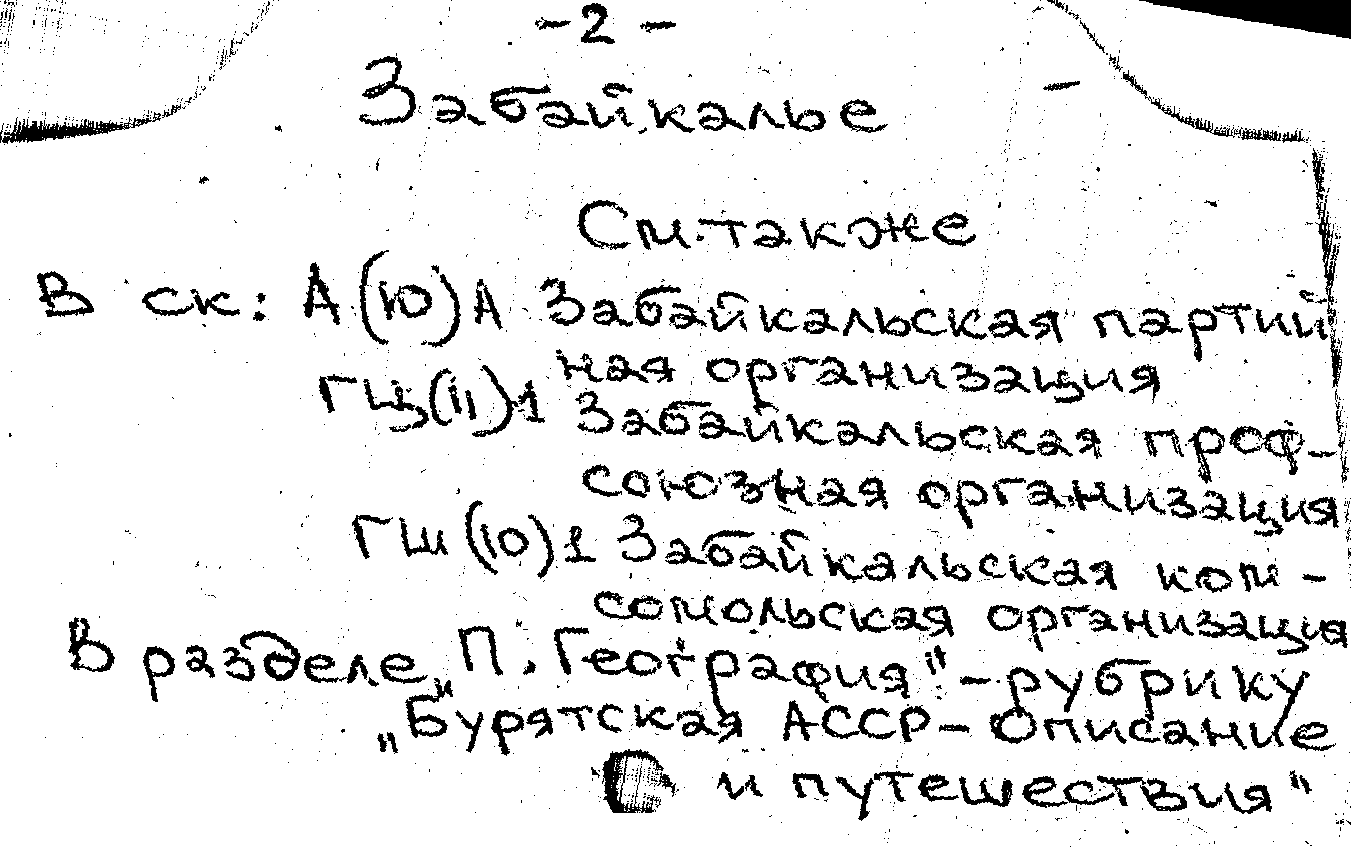 - 2 -
Забайкалье
См. также
В ск: А(Ю)А Забайкальская партий
ная организация
ГЦ(II)1 Забайкальская проф-
союзная организация
ГШ(Ю)1 Забайкальская ком-
сомольская организация
В разделе „П. География" - рубрику
„Бурятская АССР - Описание
и путешествия"